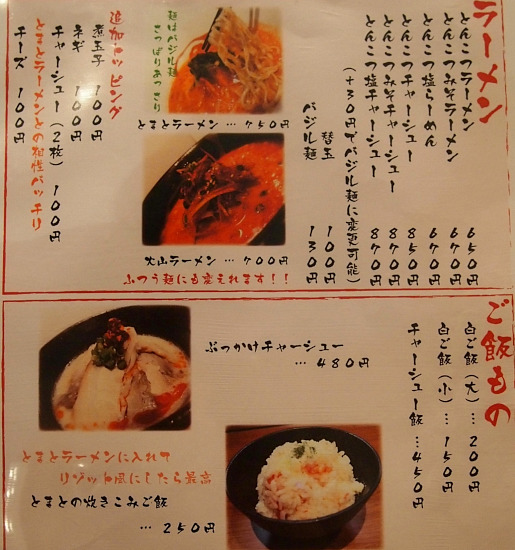 ラーメン
とんこつラーメン 650円
とんこつみそラーメン 670円
とんこつ塩らーめん 670円
とんこつチャーシュー 850円
とんこつみそチャーシュー 870円
とんこつ塩チャーシュー 870円
(+30円でバジル麺に変更可能)
替玉 100円
バジル麺 130円
麺はバジル麺
さっぱりあっさり
とまとラーメン … 750円
火山ラーメン … 700円
ふつう麺にも変えれます!!
追加トッピング
煮玉子 100円
ネギ 100円
チャーシュー(2枚) 100円
とまとラーメンとの相性バッチリ
チーズ 100円
ご飯もの
白ご飯(大) … 200円
白ご飯(小) … 150円
チャーシュー飯 … 450円
ぶっかけチャーシュー
… 480円
とまとラーメンに入れて
リゾット風にしたら最高
とまとの炊きこみご飯
… 250円